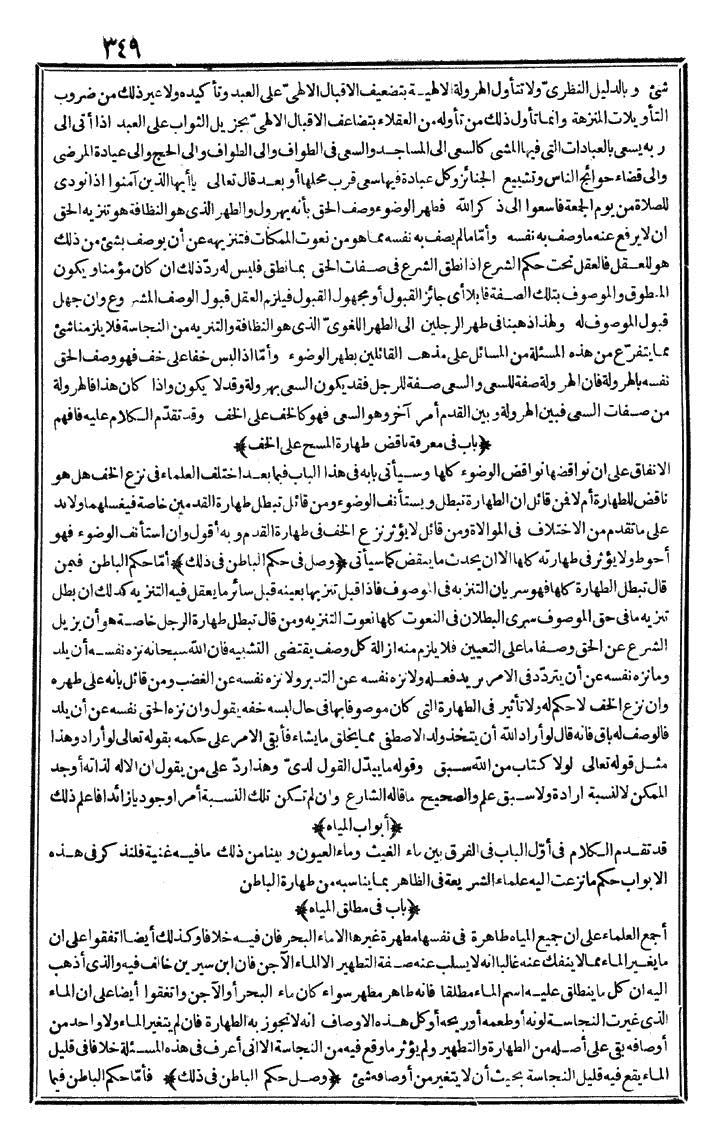 ٣٤٩
شئ وبالدليل النظرىّ ولا نتأول الهرولة الالهيــة بتضعيف الاقبال الالهىّ على العبد وتأكيده ولا غير ذلك من ضروب
التأويلات المنزهة وانما تأول ذلك من تأوله من العقلاء بتضاعف الاقبال الالهىّ بجزيل الثواب على العبد اذا أتى الى
ربه يسعى بالعبادات التى فيها المشى كالسعى الى المساجد والسعى فى الطواف والى الطواف والى الحج والى عيادة المرضى
والى قضاء حوائج الناس وتشييع الجنائز وكل عبادة فيها سعى قرب محلها أو بعد قال تعالى ياأيها الذين آمنوا اذا نودى
للصلاة من يوم الجمعة فاسعوا الى ذكر الله فطهر الوضوء وصف الحق بأنه يهرول والطهر الذى هو النظافة هو تنزيه الحق
ان لا يرفع عنه ما وصف به نفسه وأمّا ما لم يصف به نفسه مما هو من نعوت الممكنات فتنزيهه عن أن يوصف بشئ من ذلك
هو للعقل فالعقل تحت حكم الشرع اذا نطق الشرع فى صفات الحق بما نطق فليس له ردّ ذلك ان كان مؤمنا ويكون
المنطوق والموصوف بتلك الصفة قابلا أى جائز القبول أو مجهول القبول فيلزم العقل قبول الوصف المشروع وان جهل
قبول الموصوف له ولهذا ذهبنا فى طهر الرجلين الى الطهر اللغوىّ الذى هو النظافة والتنزيه من النجاسة فلا يلزمنا شئ
مما يتفرّع من هذه المسئلة من المسائل على مذهب القائلين بطهر الوضوء وأمّا اذا لبس خفا على خف فهو وصف الحق
نفسه بالهرولة فان الهرولة صفة للسعى والسعى صفة للرجل فقد يكون السعى بهرولة وقد لا يكون واذا كان هذا فالهرولة
من صفات السعى فبين الهرولة وبين القدم أمر آخر وهو السعى فهو كالخف على الخف وقد تقدّم الكلام عليه فافهم
﴿باب فى معرفة ناقض طهارة المسح على الخف﴾
الاتفاق على ان نواقضها نواقض الوضوء كلها وسيأتى بابه فى هذا الباب فيما بعد اختلف العلماء فى نزع الخف هل هو
ناقض للطهارة أم لا فمن قائل ان الطهارة تبطل ويستأنف الوضوء ومن قائل تبطل طهارة القدمين خاصة فيغسلهما ولابد
على ما تقدم من الاختلاف فى الموالاة ومن قائل لا يؤثر نزع الخف فى طهارة القدم وبه أقول وان استأنف الوضوء فهو
أحوط ولا يؤثر فى طهارته كلها الا ان يحدث ما ينقض كما سيأتى ﴿وصل فى حكم الباطن فى ذلك﴾ أمّا حكم الباطن فيمن
قال تبطل الطهارة كلها فهو سريان التنزيه فى الموصوف فاذا قبل تنزيها بعينه قبل سائر ما يعقل فيه التنزيه كذلك ان بطل
تنزيه ما فى حق الموصوف سرى البطلان فى النعوت كلها نعوت التنزيه ومن قال تبطل طهارة الرجل خاصة هو أن يزيل
الشرع عن الحق وصفا ما على التعيين فلا يلزم منه ازالة كل وصف يقتضى التشبيه فان الله سبحانه نزه نفسه أن يلد
وما نزه نفسه عن أن يتردّد فى الامر يريد فعله ولا نزه نفسه عن التدبر ولا نزه نفسه عن الغضب ومن قائل بانه على طهره
وان نزع الخف لا حكم له ولا تأثير فى الطهارة التى كان موصوفا بها فى حال لبسه خفه يقول وان نزه الحق نفسه عن أن يلد
فالوصف له باق فانه قال لو أراد الله أن يتخذ ولدا لاصطفى مما يخلق ما يشاء فأبقى الامر على حكمه بقوله تعالى لو أراد وهذا
مثــل قوله تعالى لولا كتاب من الله سبق وقوله ما يبدّل القول لدىّ وهذا ردّ على من يقول ان الاله لذاته أوجد
الممكن لا لنسبة ارادة ولا سبق علم والصحيح ما قاله الشارع وان لم تكن تلك النسبة أمرا وجوديا زائدا فاعلم ذلك
﴿أبواب المياه﴾
قد تقدم الكلام فى أوّل الباب فى الفرق بين ماء الغيث وماء العيون وبينا من ذلك ما فيه غنية فلنذكر فى هــذه
الابواب حكم ما نزعت اليه علماء الشريعة فى الظاهر بما يناسبه من طهارة الباطن
﴿باب فى مطلق المياه﴾
أجمع العلماء على ان جميع المياه طاهرة فى نفسها مطهرة غيرها الا ماء البحر فان فيه خلافا وكذلك أيضا اتفقوا على ان
ما يغير الماء مما لا ينفك عنه غالبا انه لا يسلب عنه صفة التطهير الا الماء الآجن فان ابن سيرين خالف فيه والذى أذهب
اليه ان كل ما ينطلق عليه اسم الماء مطلقا فانه طاهر مطهر سواء كان ماء البحر أو الآجن واتفقوا أيضا على ان الماء
الذى غيرت النجاسة لونه أو طعمه أو ريحه أو كل هذه الاوصاف انه لا تجوز به الطهارة فان لم يتغير الماء ولا واحد من
أوصافه بقى على أصله من الطهارة والتطهير ولم يؤثر ما وقع فيه من النجاسة الا انى أعرف فى هذه المسئلة خلافا فى قليل
الماء يقع فيه قليل النجاسة بحيث أن لا يتغير من أوصافه شئ ﴿وصل حكم الباطن فى ذلك﴾ فأمّا حكم الباطن فيما